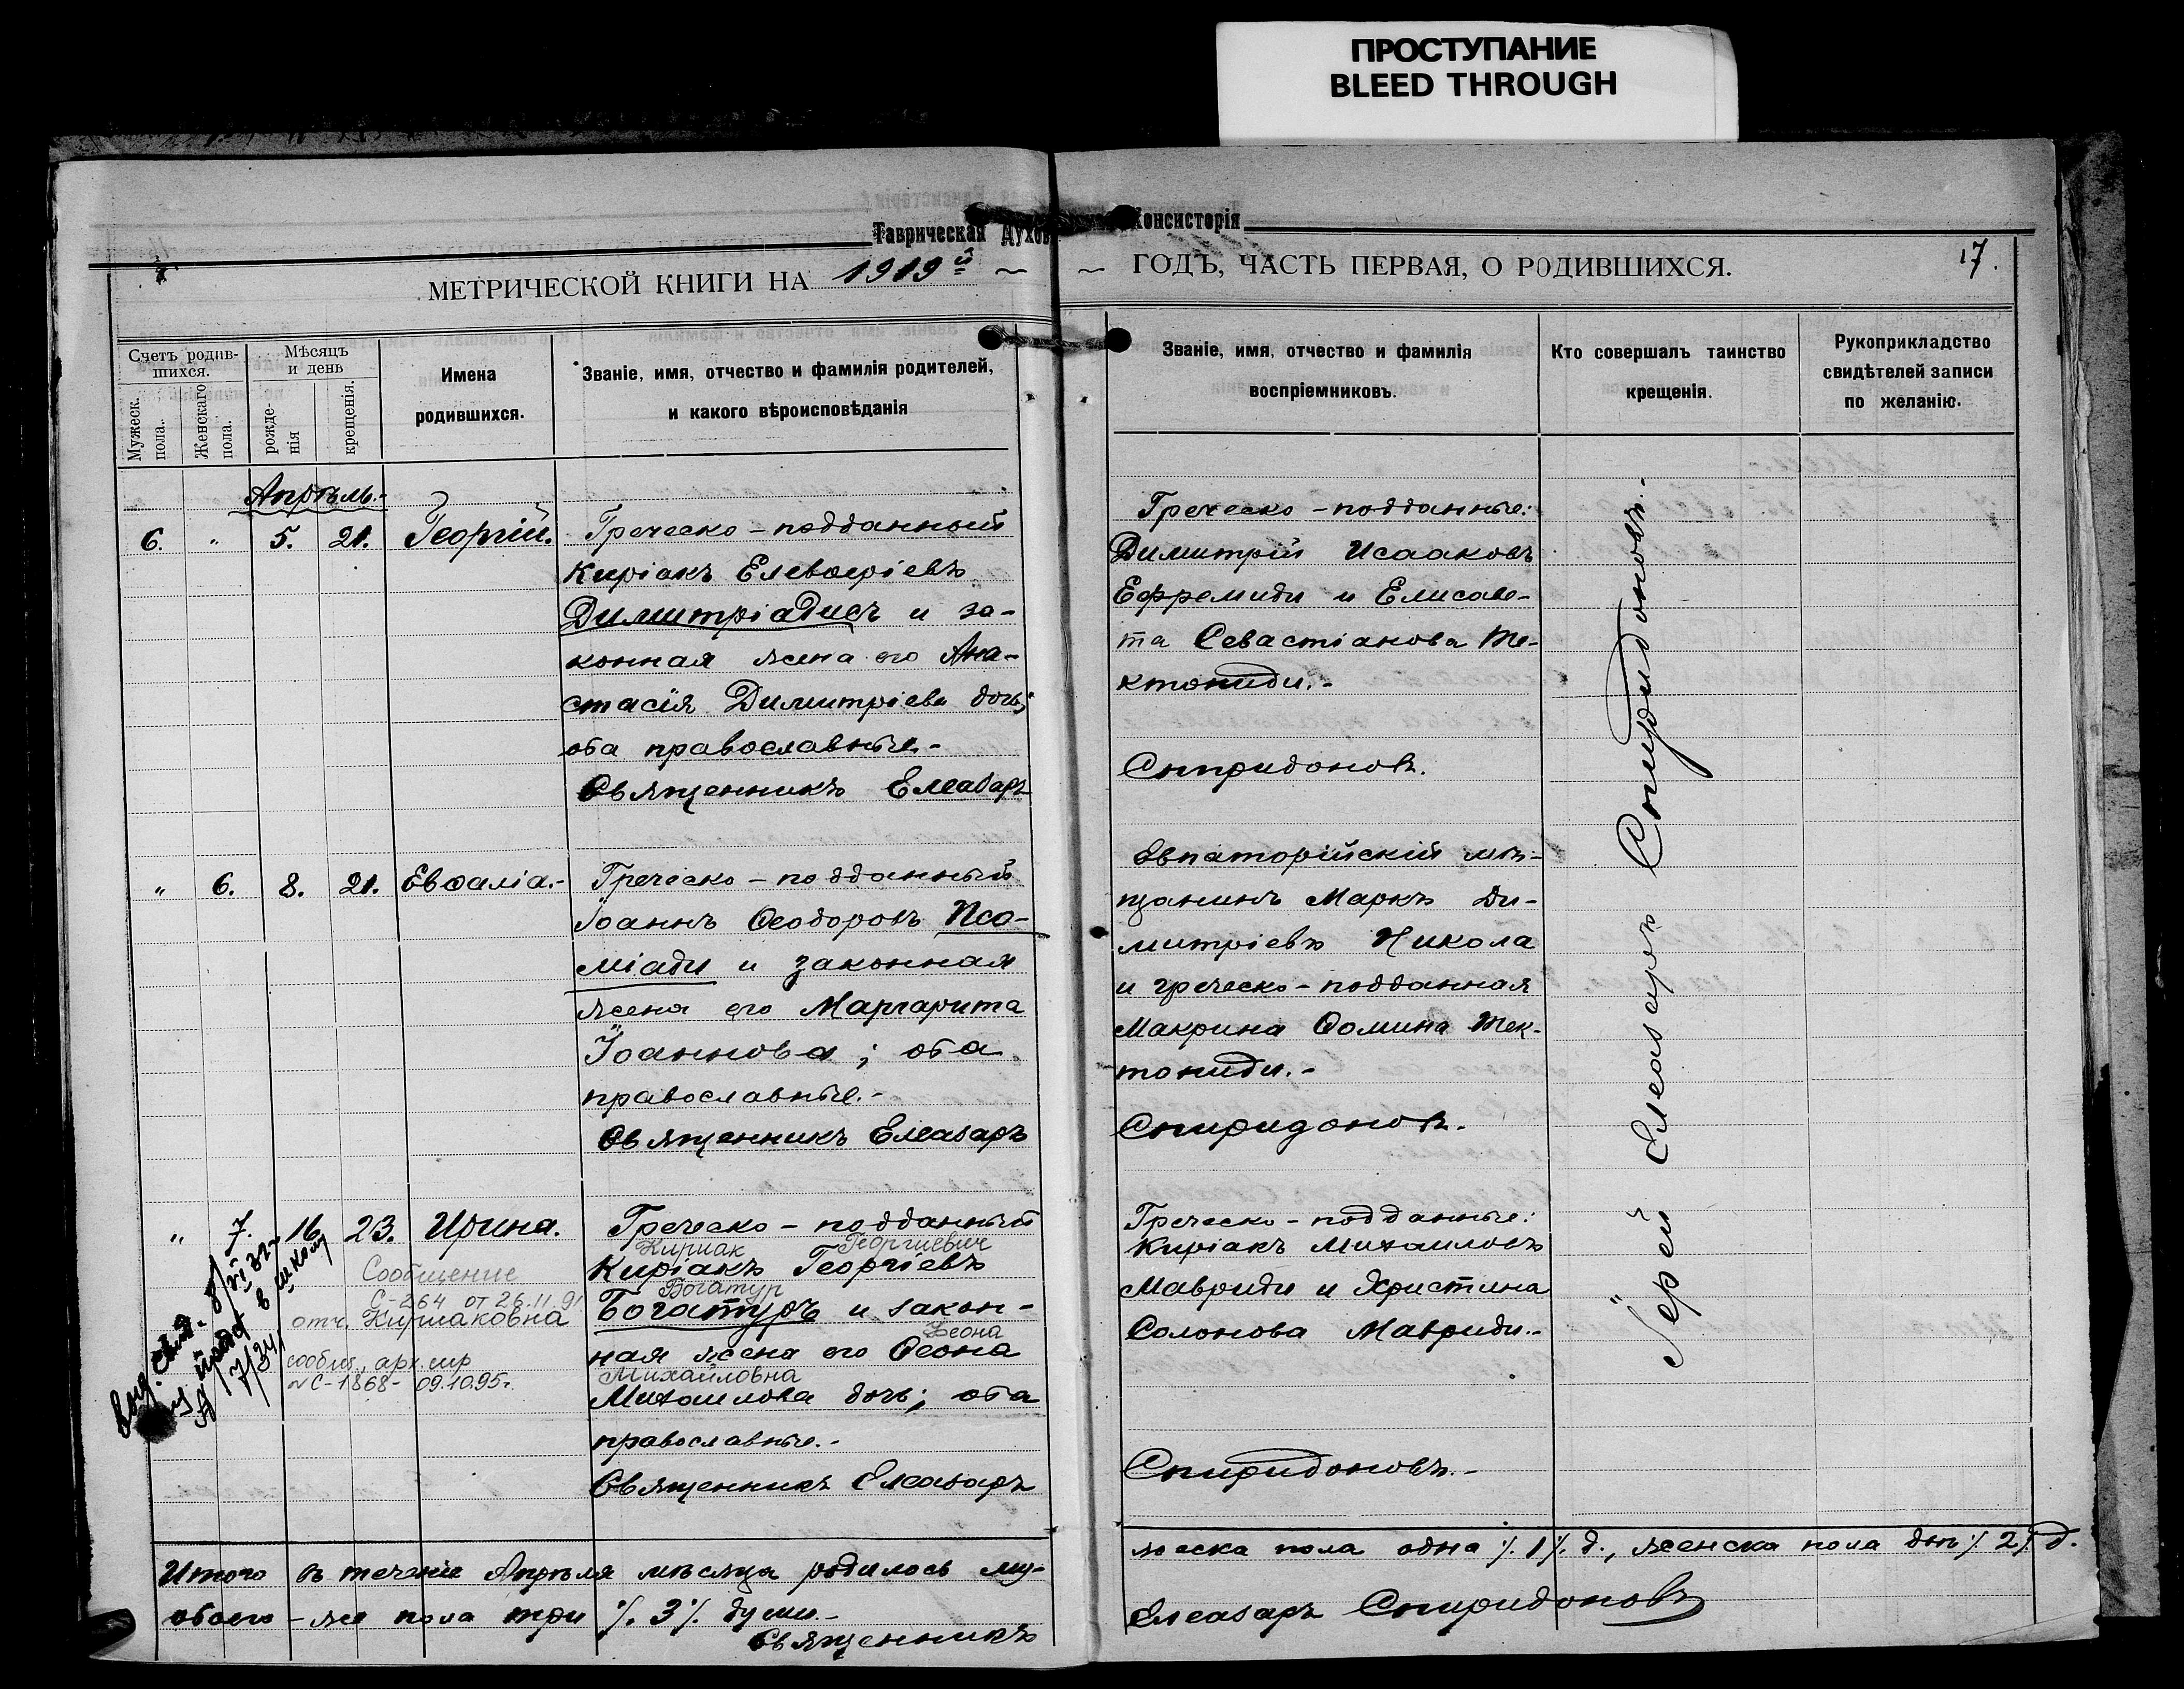 ПРОСТУПАНИЕ
BLEED THROUGH
Таврическая Духов Консисторія
МЕТРИЧЕСКОЙ КНИГИ НА 1919й
ГОДЪ, ЧАСТЬ ПЕРВАЯ, О РОДИВШИХСЯ.
17.
Счетъ родив-
шихся.
Мужеск.
пола.
Женскаго
пола.
Мѣсяцъ
и день
рожде-
нія
крещенія.
Имена
родившихся.
Званіе, имя, отчество и фамилія родителей,
и какого вѣроисповѣданія
Званіе, имя, отчество и фамилія
воспріемниковъ.
Кто совершалъ таинство
крещенія.
Рукоприкладство
свидѣтелей записи
по желанію.
Апрѣль.-
6. " 5. 21. Георгій.
Греческо-подданный
Киріакъ Елевѳеріевъ
Димитріадисъ и за-
конная жена его Ана-
стасія Димитріева дочь;
оба православные.-
Священникъ Елеазаръ
Греческо-подданные:
Димитрій Исааковъ
Ефремиди и Елисаве-
та Севастіанова Те-
ктониди.-
Спиридоновъ.
" 6. 8. 21. Евѳаліа.-
Греческо-подданный
Іоаннъ Ѳеодоровъ Пса-
міади и законная
жена его Маргарита
Іоаннова; оба
православные.-
Священникъ Елеазаръ
Евпаторійскій мѣ-
щанинъ Маркъ Ди-
митріевъ Никола
и греческо-подданная
Макрина Ѳомина Тек-
тониди.-
Спиридоновъ.
" 7. 16. 23. Ирина.
Греческо-подданный
Кириак Георгиевич
Киріакъ Георгіевъ
Богатур
Богатуръ и закон-
Феона
ная жена его Ѳеона
Михайловна
Михаилова дочь; оба
православные.-
Священникъ Елеазаръ
Сообщение
С-264 от 26.11.91
отч. Кириаковна
сообщ. арх. спр
№С-1868- 09.10.95г.
Греческо-подданные:
Киріакъ Михаиловъ
Мавриди и Христина
Солонова Мавриди.-
Спиридоновъ.-
Іерей Елеазаръ Спиридоновъ.-
Итого въ теченіе Апрѣля мѣсяца родилось му-
жеска пола одна %1% д., женска пола двѣ %2% д.
обоего-же пола три %3% души.-
Священникъ
Елеазаръ Спиридоновъ